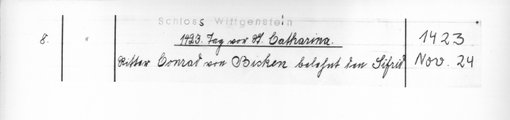 Schloss Wittgenstein
8. " 1423. Tag vor St. Catharina. 1423
Ritter Conrad von Bicken belehnt den Sifrid Nov. 24